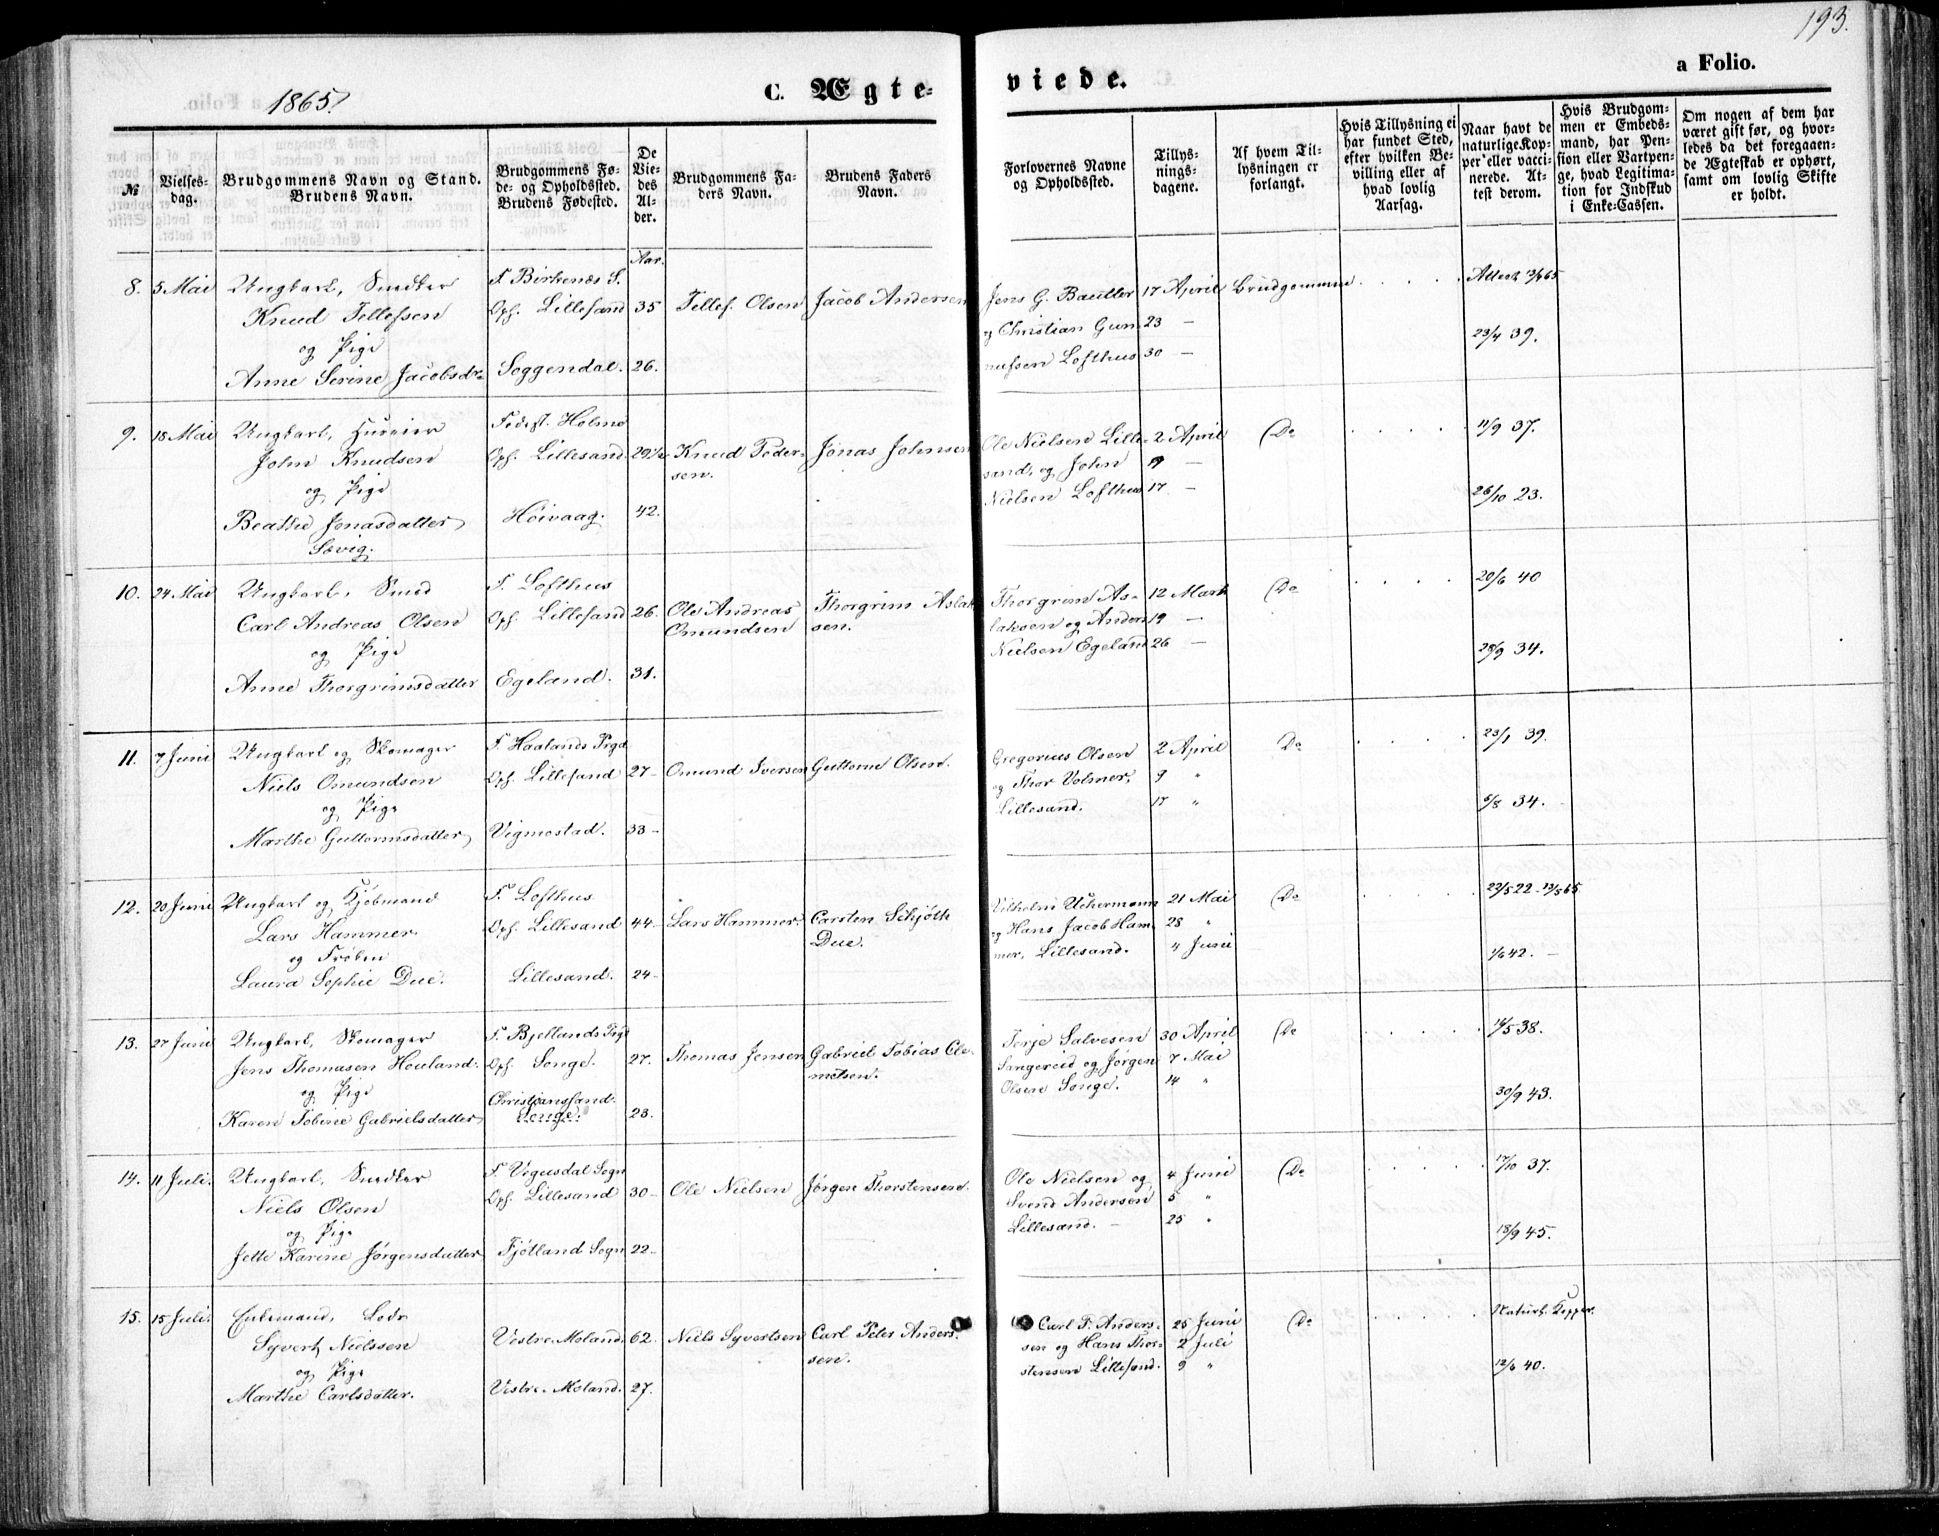 193.
1865.
C. Ægteviede.
a Folio.
№
Vielsesdag.
Brudgommens Navn og Stand.
Brudens Navn.
Brudgommens Føde- og Opholdssted.
Brudens Fødested.
De Viedes Alder.
Brudgommens Faders Navn.
Brudens Faders Navn.
Forlovernes Navne og Opholdssted.
Tillysningsdagene.
Af hvem Tillysningen er forlangt.
Hvis Tillysning ei har fundet Sted, efter hvilken Bevilling eller af hvad lovlig Aarsag.
Naar havt de naturlige Kopper eller vaccinerede. Attest derom.
Hvis Brudgommen er Embedsmand, har Pension eller Vartpenge, hvad Legitimation for Indskud i Enke-Cassen.
Om nogen af dem har været gift før, og hvorledes da det foregaaende Ægteskab er ophørt, samt om lovlig Skifte er holdt.
Aar.
8. 5 Mai Ungkarl, Snedker F. Birkenæs S. Attest
Knud Tellefsen Oph. Lillesand 35 Tellef Olsen Jacob Andersen Jens G. Bautler 17 April Brudgommen
og Pige og Christian Gun- 23 — 23/4 39.
Anne Serine Jacobsdr Soggendal. 26. nufsen Lofthus 30 —
9. 18 Mai Ungkarl, Huseier Fødest. Holme 11/9 37.
John Knudsen Oph. Lillesand 29½ Knud Peder- Jonas Johnsen Ole Nielsen Lille- 2 April Do
og Pige sen. sand, og John 9 —
Beathe Jonasdatter Høivaag. 42. Nielsen Lofthus 17 — 26/10 23.
Sævig.
10. 24 Mai Ungkarl, Smed F. Lofthus 20/6 40
Carl Andreas Olsen Oph. Lillesand 26. Ole Andreas Thorgrim Aslak- Thorgrim As- 12 Marts Do
og Pige Omundsen sen. laksen og Anders 19 —
Anne Thorgrimsdatter Egeland. 31. Nielsen Egeland 26 — 28/9 34.
11. 7 Juni Ungkarl og Skomager F. Haalands Prgd 23/1 39.
Niels Omundsen Oph. Lillesand 27 — Omund Iversen Guttorm Olsen. Gregorius Olsen 2 April Do
og Pige og Thor Volmer, 9 "
Marthe Guttormsdatter Vigmostad. 33 — Lillesand. 17 " 6/8 34.
12. 20 Juni Ungkarl og Kjøbmand F. Lofthus 22/5 22 - 13/5 65
Lars Hammer Oph. Lillesand 44 — Lars Hammer. Carsten Schjøth Vilhelm Uckermann 21 Mai Do
og Frøken Due. og Hans Jacob Ham- 28 "
Laura Sophie Due. Lillesand. 24 — mer, Lillesand. 4 Juni 1/6 42. —
13. 27 Juni Ungkarl, Skomager F. Bjellands Prgd 14/5 38.
Jens Thomasen Houland. Oph. Songe. 27. Thomas Jensen Gabriel Tobias Cle- Terje Salvesen 30 April Do
og Pige Christiansand. metsen. Sangereid og Jørgen 7 Mai
Karen Tobine Gabrielsdatter Songe. 23. Olsen Songe. 14 " 30/9 43.
14. 11 Juli. Ungkarl, Snedker F. Vegusdal Sogn 17/10 37.
Niels Olsen Oph. Lillesand 30 — Ole Nielsen Jørgen Thorstensen. Ole Nielsen og 4 Juni Do
og Pige Svend Andersen 5 "
Jette Karine Jørgensdatter Fjotland Sogn 22 — Lillesand. — 25 " 18/9 45.
15. 15 Juli. Enkemand, Lods Naturl. Kopper.
Syvert Nielssen Vestre-Moland. 62. Niels Syvertsen Carl Peter Anders- Carl P. Anders- 25 Juni Do
og Pige sen. sen og Hans Thor- 2 Juli
Marthe Carlsdatter. Vestre-Moland. 27. stensen Lillesand. 9 " 12/6 40.